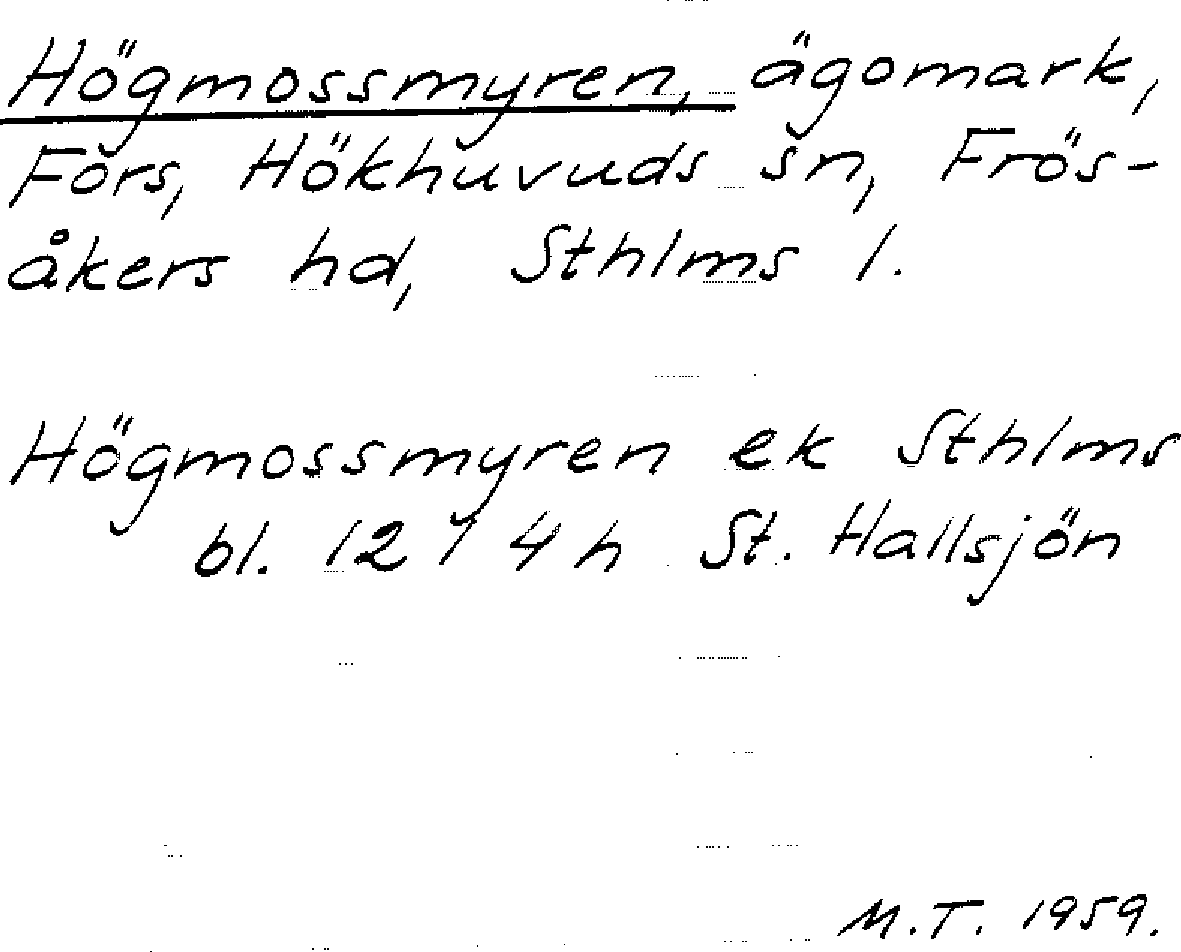 Högmossmyren, ägomark,
Fors, Hökhuvuds sn, Frös-
åkers hd, Sthlms l.
Högmossmyren ek Sthlms
bl. 12 1 4 h St. Hallsjön
M.T. 1959.